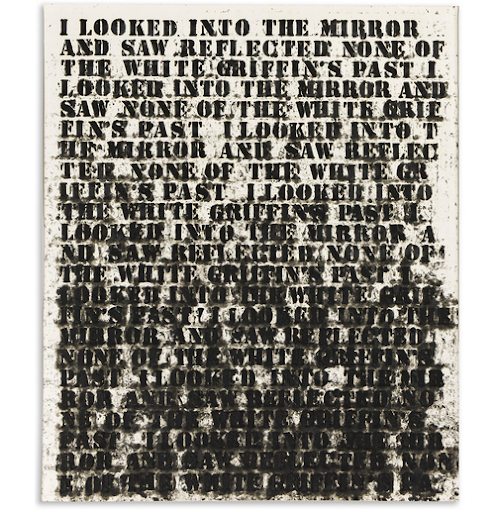 I LOOKED INTO THE MIRROR
AND SAW REFLECTED NONE OF
THE WHITE GRIFFIN'S PAST I
LOOKED INTO THE MIRROR AND
SAW NONE OF THE WHITE GRIF
FIN'S PAST I LOOKED INTO T
HE MIRROR AND SAW REFLEC
TED NONE OF THE WHITE GR
IFFIN'S PAST I LOOKED INTO
THE WHITE GRIFFIN'S PAST I
LOOKED INTO THE MIRROR A
ND SAW REFLECTED NONE OF
THE WHITE GRIFFIN'S PAST I
LOOKED INTO THE WHITE GRIF
FIN'S PAST I LOOKED INTO THE
MIRROR AND SAW REFLECTED
NONE OF THE WHITE GRIFFIN'S
PAST I LOOKED INTO THE MIR
ROR AND SAW REFLECTED NO
NE OF THE WHITE GRIFFIN'S
PAST I LOOKED INTO THE MIR
ROR AND SAW REFLECTED NON
E OF THE WHITE GRIFFIN'S PA